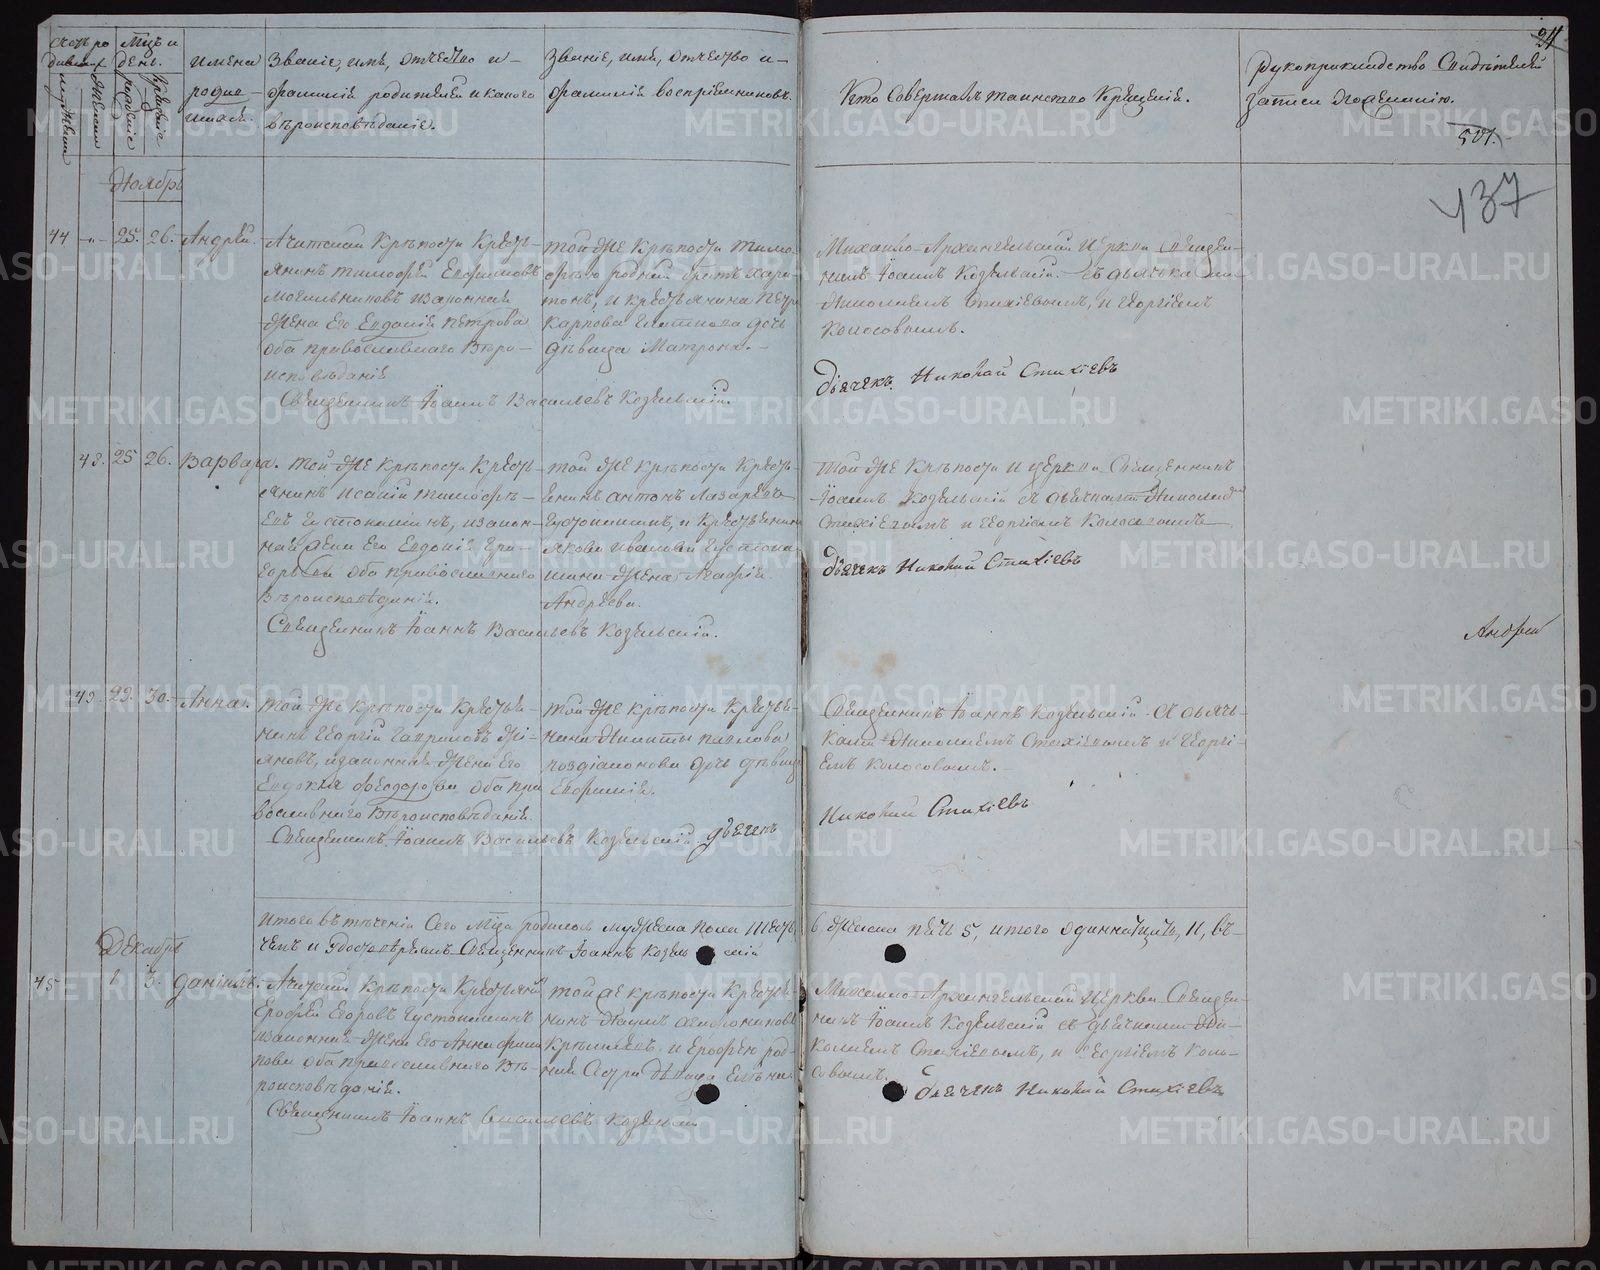 Счетъ ро
дившихся
мужеска
женска
Мцъ и
день.
рожденіе
Крещеніе
имена
родив
шихся.
Званіе, имя, отчество и
фамилія родителей и какого
вѣроисповѣданія.
Званіе, имя, отчество и
фамилія воспріемниковъ.
Кто Совершалъ таинство Крещенія.
Рукоприкладство Свидѣтелей
записи по желанію.
24
501.
437
Ноябрь
44 -"- 25. 26. Андрей.
Ачитской Крѣпости Кресть
янинъ тимофей Ефимовъ
Могильниковъ изаконная
жена Его Евдокія петрова
оба православнаго вѣро
исповѣданія
Священникъ Іоаннъ Васильевъ Козельскій.
той же Крѣпости тимо
фею родной братъ хари
тонъ, и Крестьянина петра
Карпова дочь
дѣвица Матрона.
Михаило-Архангельской Церкви Священ
никъ Іоаннъ Козельскій съ дьячками
Николаемъ Стахіевымъ, и Георгіемъ
Колосовымъ.
дьячекъ Николай Стахіевъ
42. 25 26. Варвара.
той же Крѣпости Кресть
янинъ Исакій тимофѣ
евъ Густокашинъ, изакон
ная жена Его Евдокія Гри
горьева оба православнаго
вѣроисповѣданія.
Священникъ Іоаннъ Васильевъ Козельскій.
той же крѣпости Кресть
янинъ антонъ Лазаревъ
Густокашинъ, и Крестьянина
Якова иванова Густока
шина жена Агафія
Андреева.
той же Крѣпости и церкви Священникъ
Іоаннъ Козельскій съ дьячками Николаемъ
Стахіевымъ и Георгіемъ Колосовымъ
дьячекъ Николай Стахіевъ
Андрей
43. 29. 30. Анна.
той же крѣпости Крестья
нинъ Георгій Гавриловъ
яновъ, изаконная жена его
Евдокія Феодорова оба пра
вославнаго вѣроисповѣданія.
Священникъ Іоаннъ Васильевъ Козельскій дьячекъ
той же крѣпости Крестья
нина Никиты павлова
поздіакова дочь дѣвица
Евфимія.
Священникъ Іоаннъ Козельскій съ дьяч
ками Николаемъ Стахіевымъ и Георгі
емъ Колосовымъ.
Николай Стахіевъ
Итого въ теченіи Сего Мца родилось мужеска пола шесть 6 женска пять 5, итого одиннатцать, 11, въ
чемъ и удостовѣряемъ Священникъ Іоаннъ Козельскій
Декабрь
45 2 3. даніилъ.
Ачитской Крѣпости Крестьянинъ
Ерофей Егоровъ Густокашинъ
изаконная жена его Анна
оба православнаго вѣ
роисповѣданія.
Священникъ Іоаннъ Васильевъ Козельскій
той же крѣпости Крестья
нинъ Наумъ
и Ерофею род
ная Сестра дѣвица
Михаило-Архангельской Церкви Священ
никъ Іоаннъ Козельскій съ дьячками Ни
колаемъ Стахіевымъ, и Георгіемъ Коло
совымъ.
дьячекъ Николай Стахіевъ
METRIKI.GASO-URAL.RU